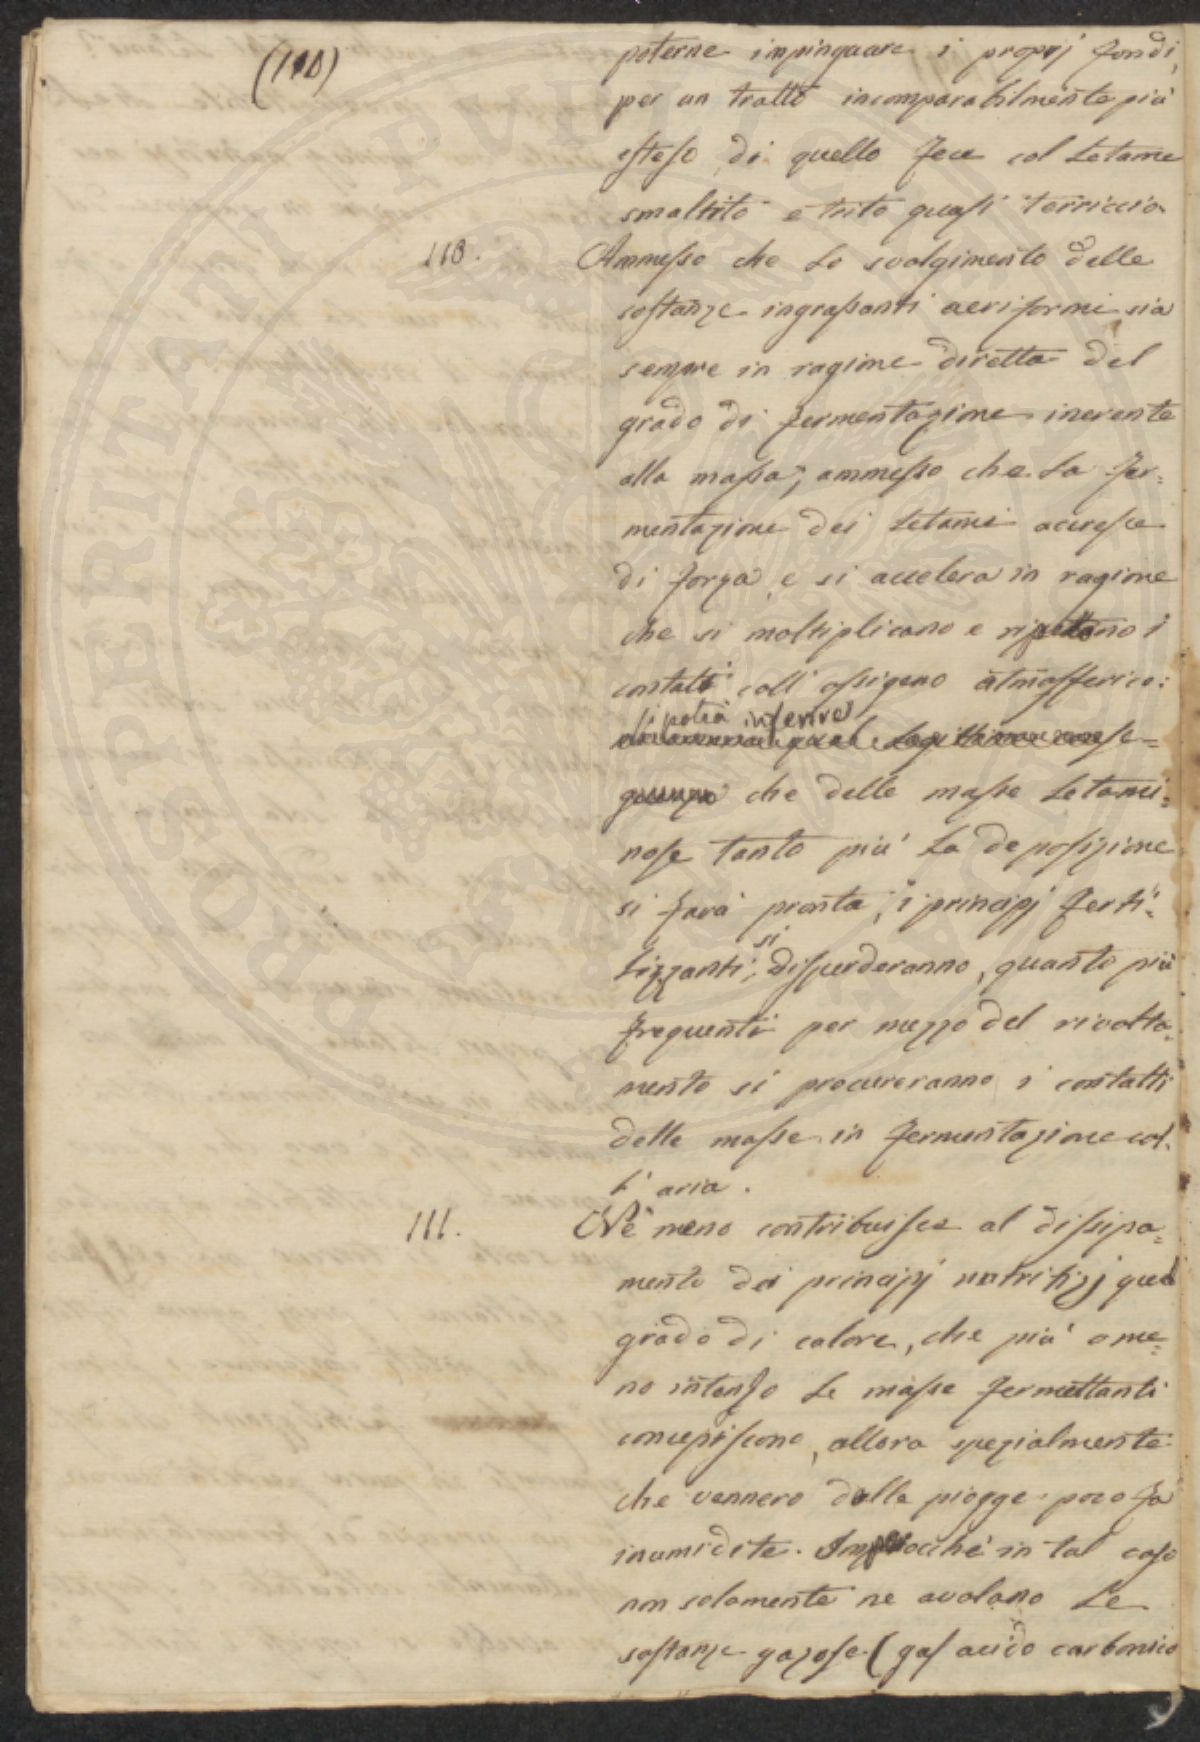 (110)
poterne impinguare i proprj fondi,
per un tratto incomparabilmente più
esteso di quello fece col letame
smaltito e trito quasi terriccio
110.
Ammesso che lo svolgimento delle
sostanze ingrassanti aeriformi sia
sempre in ragione diretta del
grado di fermentazione inerente
alla massa; ammesso che la fer=
mentazione dei letami accresce
di forza, e si accelera in ragione
che si moltiplicano e ripetono i
contatti coll' ossigeno atmosferico:
si potrà inferire
legittima conse=
guenza che delle masse letami=
nose tanto più la deposizione
si farà pronta, i principj ferti=
si
lizzanti, disperderanno, quanto più
frequenti per mezzo del rivolta=
mento si procureranno i contatti
delle masse in fermentazione col=
l' aria.
111.
Nè meno contribuisce al dissipa=
mento dei principj nutritizj quel
grado di calore, che più o me=
no intenso le masse fermettanti
concepiscono, allora spezialmente
che vennero dalle piogge poco fa
inumidite. Imperocchè in tal caso
non solamente ne avolano le
sostanze gazose (gas acido carbonico
PROSPERITATI PVBLICAE